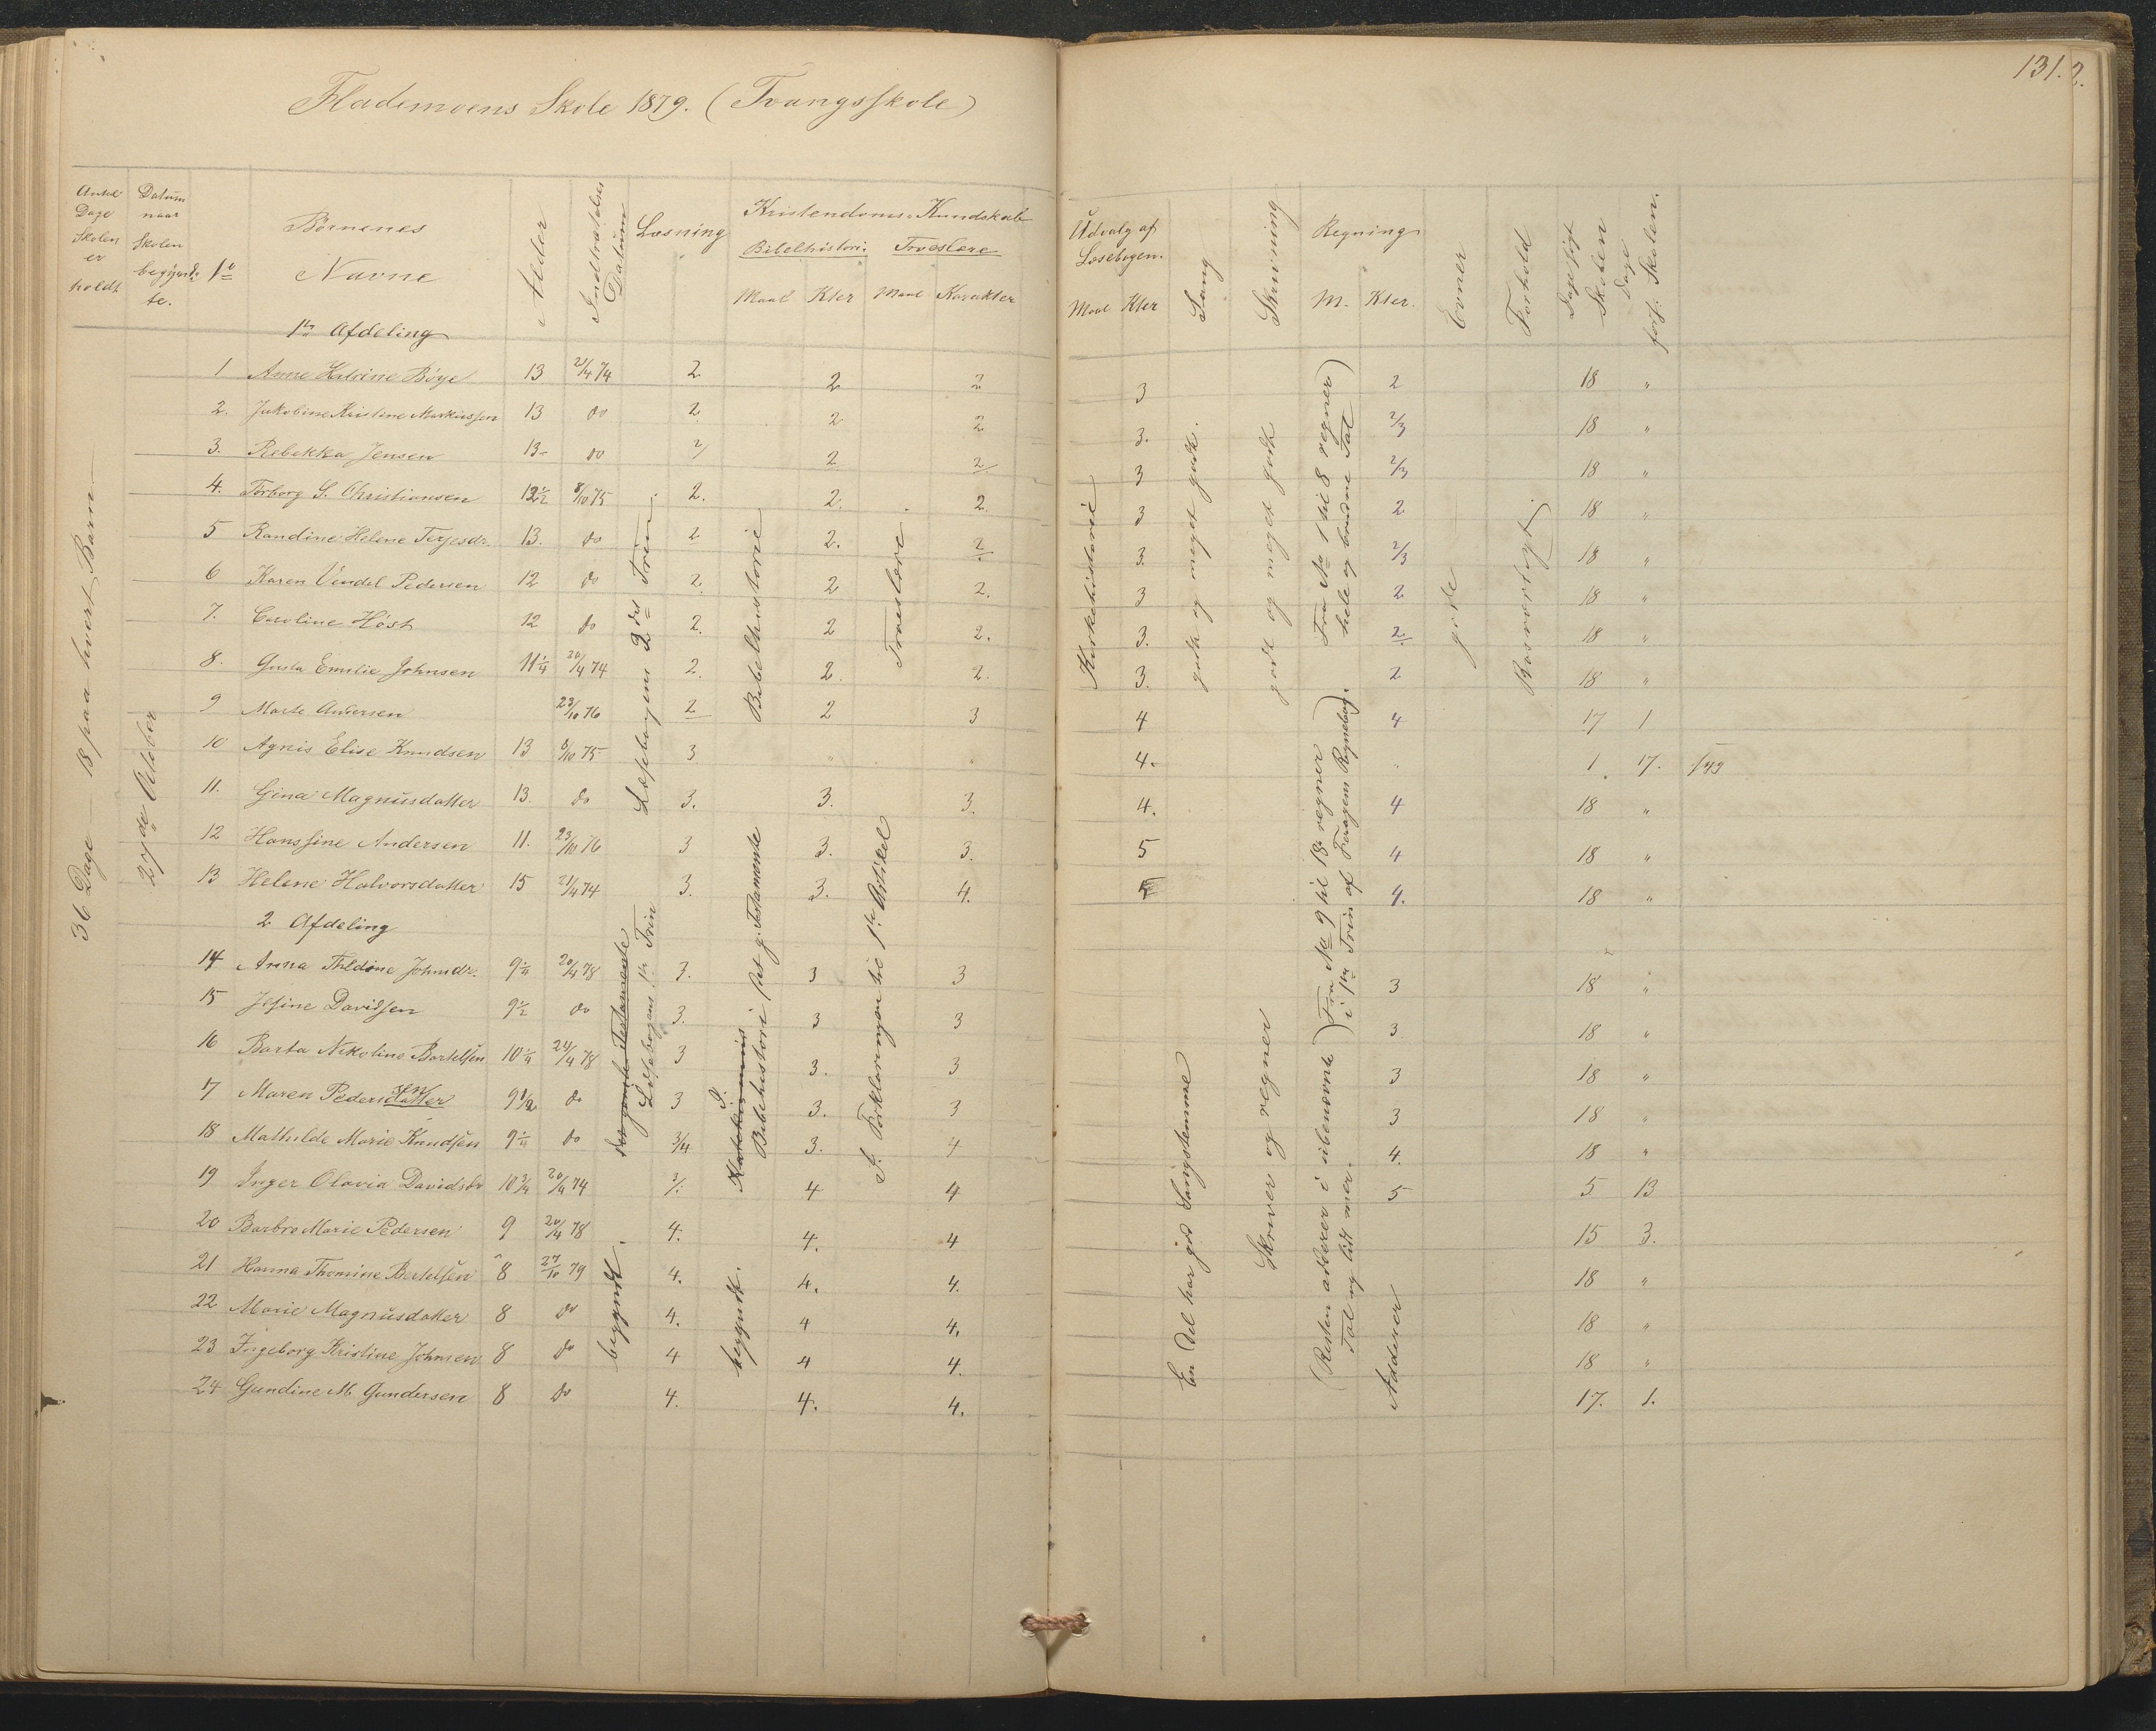 131.2.
Flademoens Skole 1879. (Tvangsskole)
Antal Dage Skolen er holdt
Datum naar Skolen begyndte.
No
Børnenes Navne
Alder
Indtrædelses Datum
Læsning
Kristendoms-Kundskab
Bibelhistorie Troeslære
Maal Kter Maal Karakter
Udvalg af Læsebogen.
Maal Kter
Sang
Skrivning
Regning
M. Kter.
Evner
Forhold
Dage søgt Skolen
Dage fors. Skolen.
36 Dage — 18 paa hvert Barn
27de October
1ste Afdeling
1 Anne Katrine Bøye 13 21/4 74 2 2 2 3 2 18 "
2. Jakobine Kristine Markussen 13 do 2 2 2 3. 2/3 18 "
3. Rebekka Jensen 13 do 2/ 2 2/ 3 2/3 18 "
4. Torborg S. Christiansen 12½ 8/10 75 2. 2. 2. 3 2 18 "
5 Randine Helene Terjesdr. 13. do 2 2. 2 3. 2/3 18 "
6 Karen Vendel Pedersen 12 do 2. 2 2. 3 2 18 "
7. Caroline Høst 12 do 2. 2 2. 3. 2 18 "
8. Gusta Emilie Johnsen 11¼ 20/4 74 2. 2. 2. 3. 2 18 "
9 Marte Andersen 23/10 76 2 2 3 4 4 17 1
10 Agnis Elise Knudsen 13 8/10 75 3 " " 4. " 1 17.
11. Gina Magnusdatter 13. do 3. 3. 3. 4. 4 18 "
12 Hanssine Andersen 11. 23/10 76 3 3. 3. 5 4 18 "
13 Helene Halvorsdatter 15 21/4 74 3. 3. 4. 5 4. 18 "
2 Afdeling
14 Anna Theldine Johnsdr. 9¼ 20/4 78 3. 3 3 3 18 "
15 Jesine Davidsen 9½ do 3. 3 3 3 18 "
16 Barta Nikoline Bertelsen 10¼ 24/4 78 3 3. 3 3 18 "
17 Maren Pedersdatter sen 9½ do 3 3. 3 3 18 "
18 Mathilde Marie Knudsen 9¼ do 3/4 3. 4 4. 18 "
19 Inger Olavia Davidsdr 10¾ 20/4 74 4 4 5 5 13
20 Barbro Marie Pedersen 9 20/4 78 4. 4. 4 15 3.
21 Hanna Thomine Bertelsen 8 27/10 79 4. 4. 4. 18 "
22 Marie Magnusdatter 8 do 4. 4 4. 18 "
23 Ingeborg Kristine Johnsen 8 do 4 4 4. 18 "
24 Gundine M. Gundersen 8 do 4. 4. 4. 17. 1.
Læsebogens 2det Trin
det gamle Testamente
Læsebogens 1ste Trin
begyndt.
Bibelhistorie
Bibelhistorie det g. Testamente
begyndt.
Troeslære
Forklaringen til 1ste Artikel
Kirkehistorie
godt og meget godt.
En Del har god Sangstemme
godt og meget godt
Skriver og regner
Fra No 1 til 8 regner) hele og brudne Tal
Fra No 9 til 18 regner) i 1ste Trin af Foragens Regnebog.
(Resten adderer i ubenævnte) Tal og lidt mer.
Adderer
gode
Rosværdigt